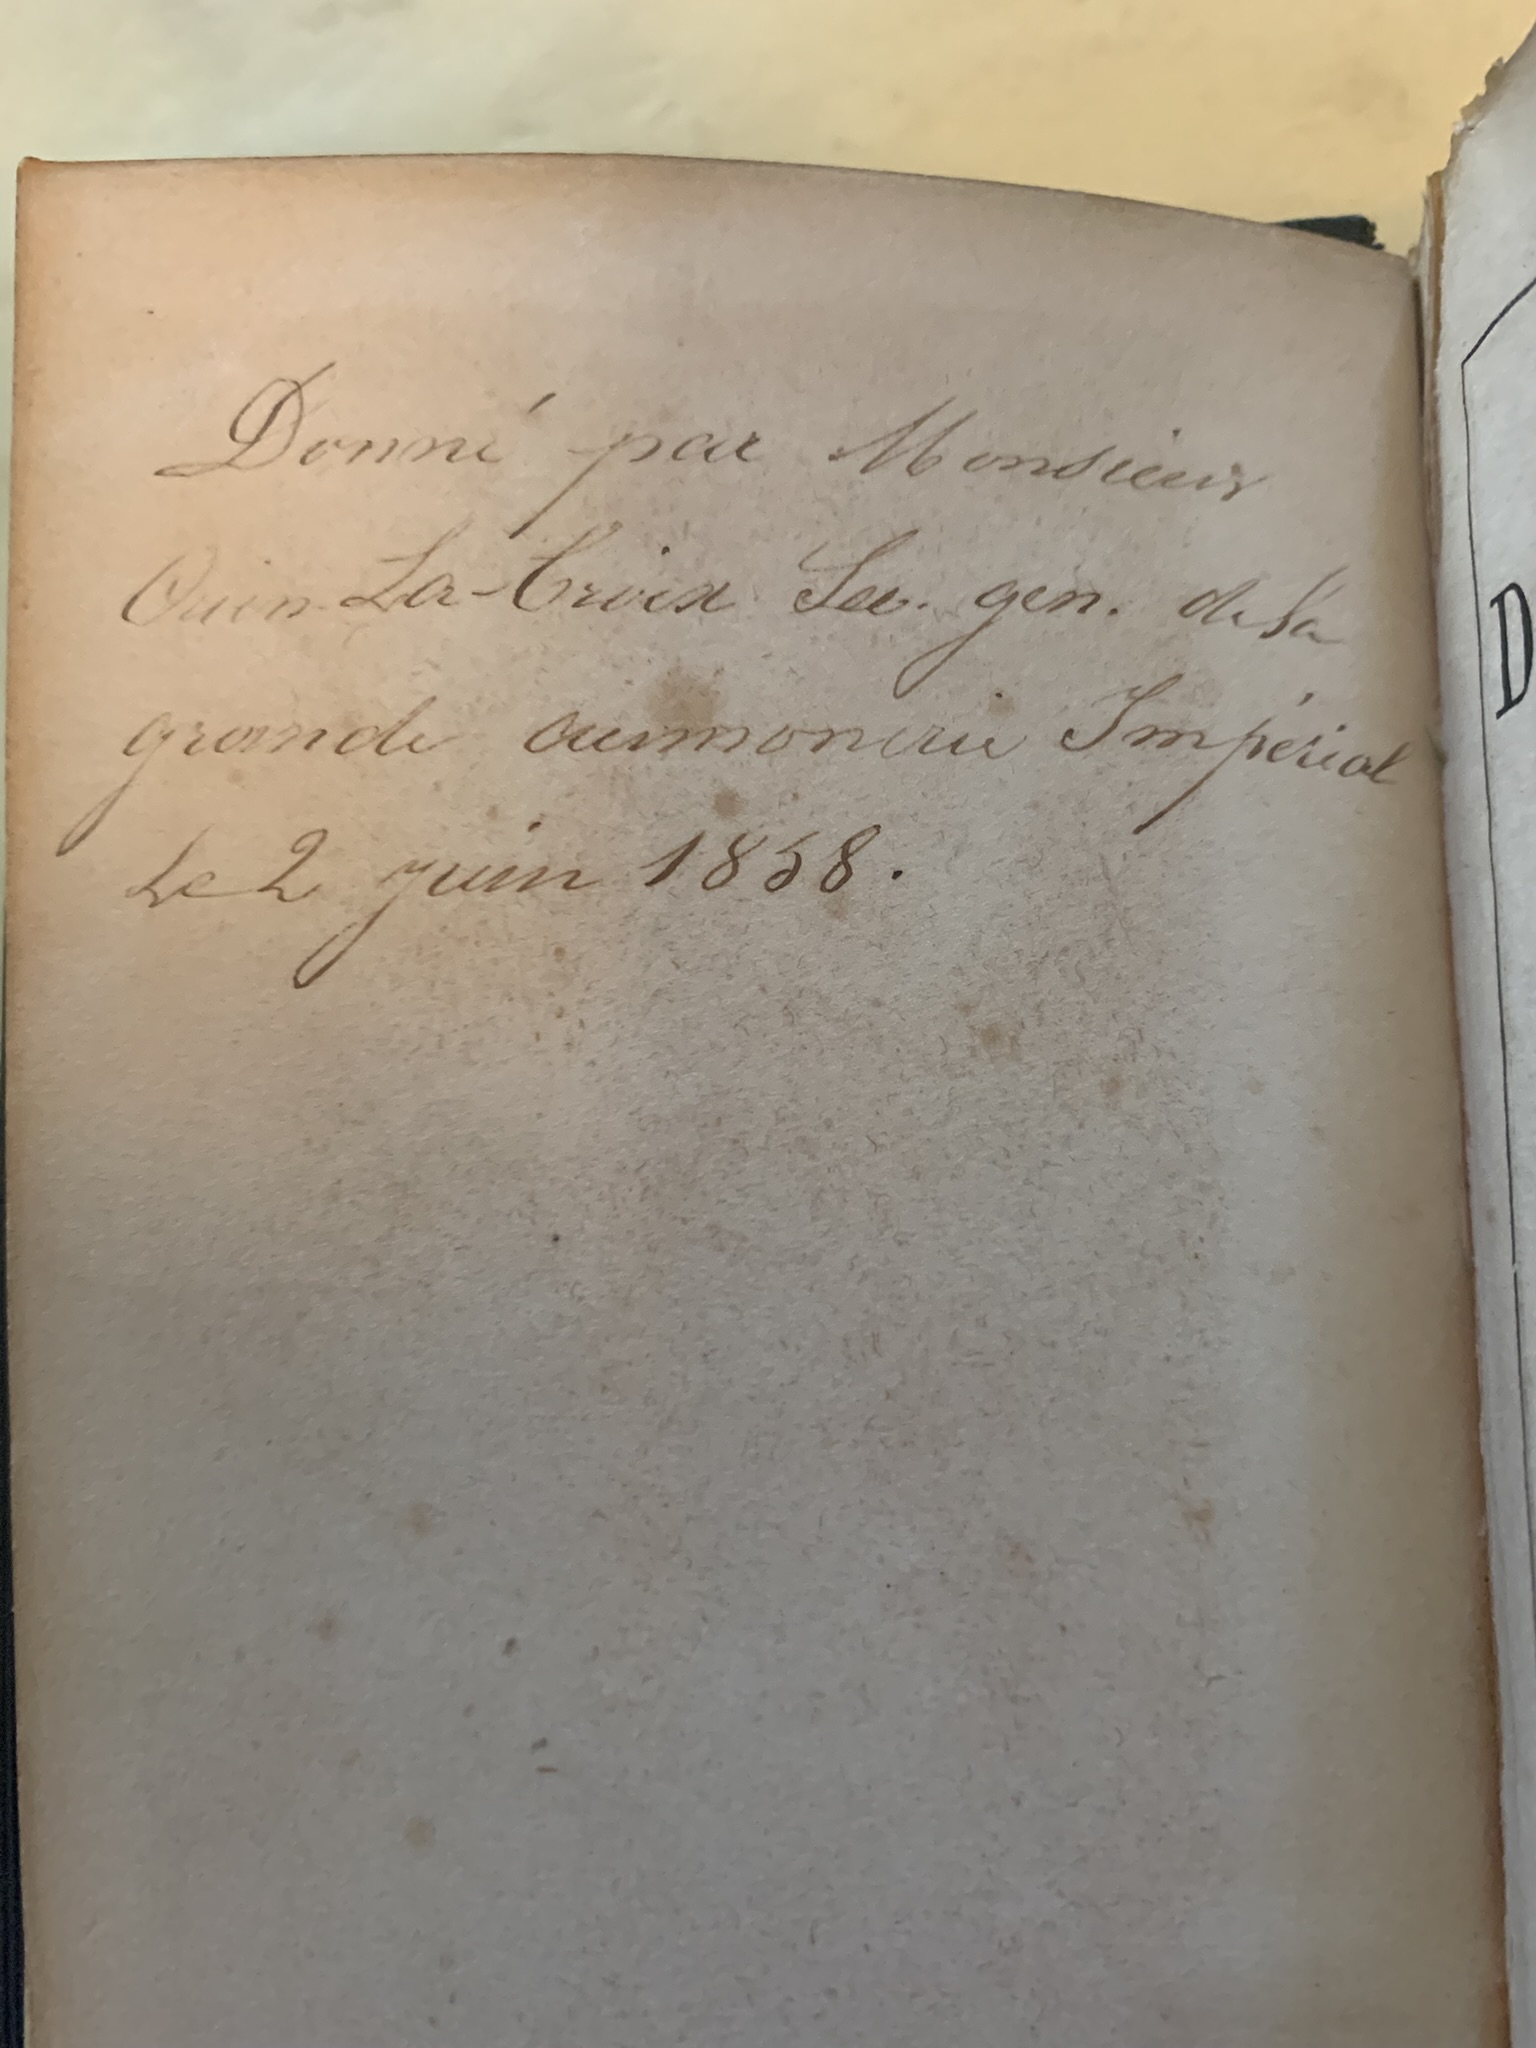 Donné par Monsieur
Ouin-La-Croix Sec. gen. de la
grande aumonerie Impérial
Le 2 juin 1858.
D